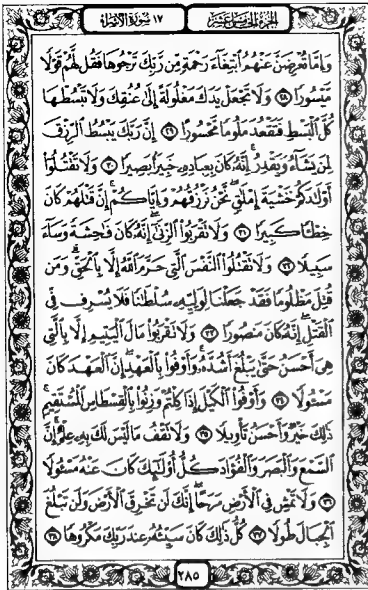 الجزء الخامس عشر
١٧ سورة الإسراء
وَإِمَّا تُعْرِضَنَّ عَنْهُمُ ٱبْتِغَآءَ رَحْمَةٍ مِّن رَّبِّكَ تَرْجُوهَا فَقُل لَّهُمْ قَوْلًا
مَّيْسُورًا ٢٨ وَلَا تَجْعَلْ يَدَكَ مَغْلُولَةً إِلَىٰ عُنُقِكَ وَلَا تَبْسُطْهَا
كُلَّ ٱلْبَسْطِ فَتَقْعُدَ مَلُومًا مَّحْسُورًا ٢٩ إِنَّ رَبَّكَ يَبْسُطُ ٱلرِّزْقَ
لِمَن يَشَآءُ وَيَقْدِرُ ۚ إِنَّهُۥ كَانَ بِعِبَادِهِۦ خَبِيرًۢا بَصِيرًا ٣٠ وَلَا تَقْتُلُوٓا۟
أَوْلَٰدَكُمْ خَشْيَةَ إِمْلَٰقٍ ۖ نَّحْنُ نَرْزُقُهُمْ وَإِيَّاكُمْ ۚ إِنَّ قَتْلَهُمْ كَانَ
خِطْـًٔا كَبِيرًا ٣١ وَلَا تَقْرَبُوا۟ ٱلزِّنَىٰٓ ۖ إِنَّهُۥ كَانَ فَٰحِشَةً وَسَآءَ
سَبِيلًا ٣٢ وَلَا تَقْتُلُوا۟ ٱلنَّفْسَ ٱلَّتِى حَرَّمَ ٱللَّهُ إِلَّا بِٱلْحَقِّ ۗ وَمَن
قُتِلَ مَظْلُومًا فَقَدْ جَعَلْنَا لِوَلِيِّهِۦ سُلْطَٰنًا فَلَا يُسْرِف فِّى
ٱلْقَتْلِ ۖ إِنَّهُۥ كَانَ مَنصُورًا ٣٣ وَلَا تَقْرَبُوا۟ مَالَ ٱلْيَتِيمِ إِلَّا بِٱلَّتِى
هِىَ أَحْسَنُ حَتَّىٰ يَبْلُغَ أَشُدَّهُۥ ۚ وَأَوْفُوا۟ بِٱلْعَهْدِ ۖ إِنَّ ٱلْعَهْدَ كَانَ
مَسْـُٔولًا ٣٤ وَأَوْفُوا۟ ٱلْكَيْلَ إِذَا كِلْتُمْ وَزِنُوا۟ بِٱلْقِسْطَاسِ ٱلْمُسْتَقِيمِ ۚ
ذَٰلِكَ خَيْرٌ وَأَحْسَنُ تَأْوِيلًا ٣٥ وَلَا تَقْفُ مَا لَيْسَ لَكَ بِهِۦ عِلْمٌ ۚ إِنَّ
ٱلسَّمْعَ وَٱلْبَصَرَ وَٱلْفُؤَادَ كُلُّ أُو۟لَٰٓئِكَ كَانَ عَنْهُ مَسْـُٔولًا
٣٦ وَلَا تَمْشِ فِى ٱلْأَرْضِ مَرَحًا ۖ إِنَّكَ لَن تَخْرِقَ ٱلْأَرْضَ وَلَن تَبْلُغَ
ٱلْجِبَالَ طُولًا ٣٧ كُلُّ ذَٰلِكَ كَانَ سَيِّئُهُۥ عِندَ رَبِّكَ مَكْرُوهًا ٣٨
٢٨٥